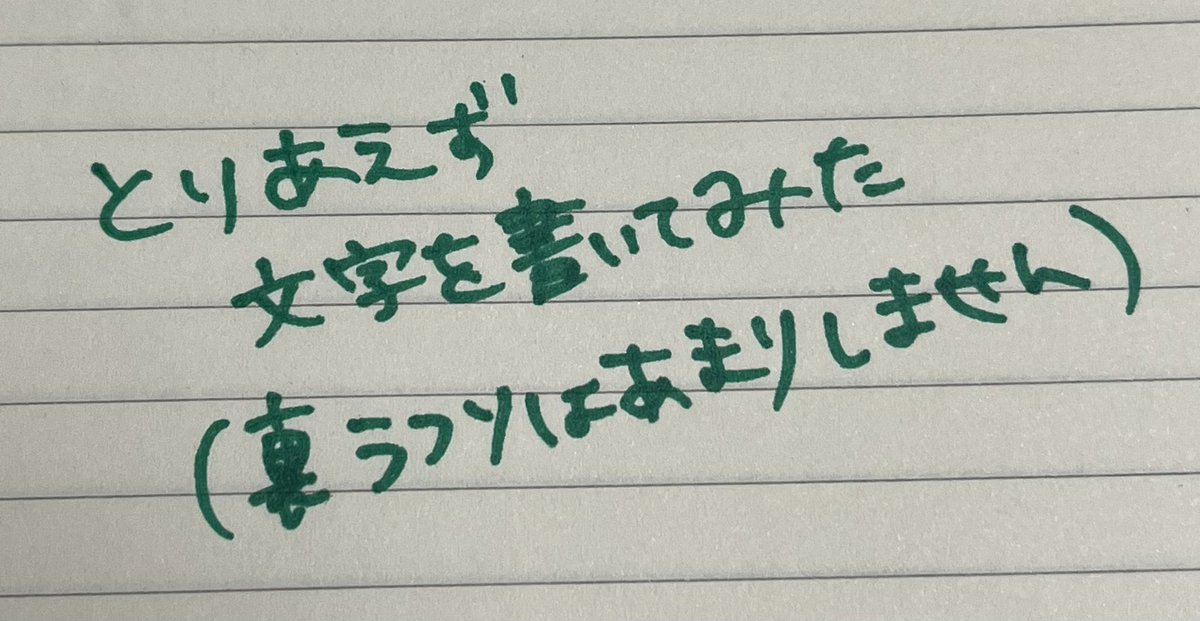 とりあえず
文字を書いてみた
(裏うつりはあまりしません)